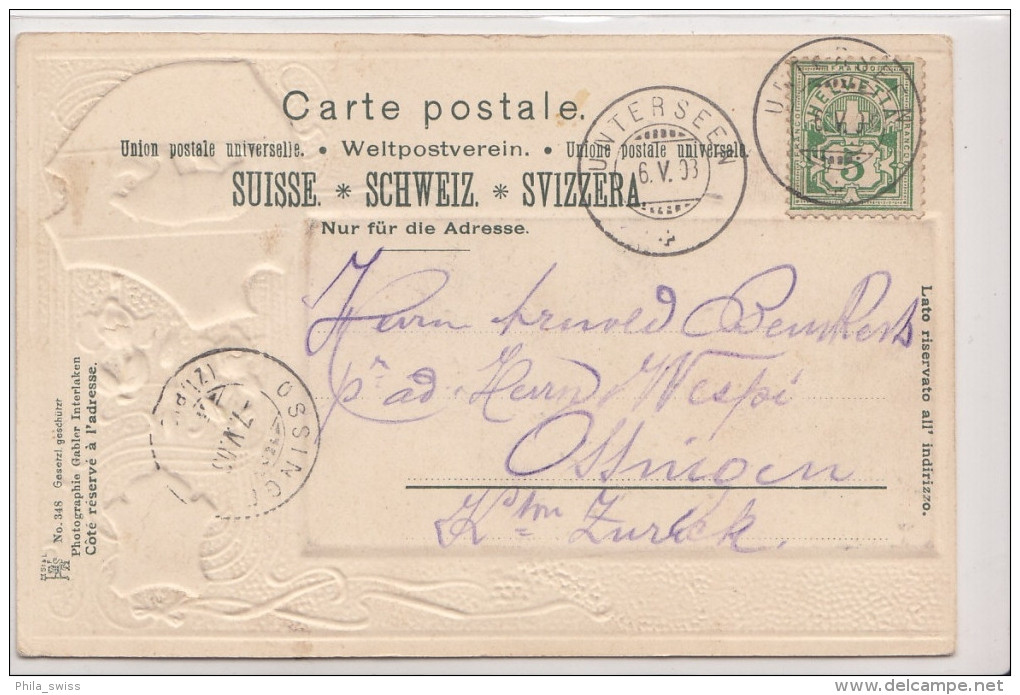 Carte postale.
Union postale universelle. • Weltpostverein. • Unione postale universale.
SUISSE. * SCHWEIZ. * SVIZZERA.
Nur für die Adresse.
UNTERSEEN
6.V.03
FRANCO
HELVETIA
5
Herrn
pr ad. Herrn Wespi
Ossingen
Kton Zürich.
Lato riservato all' indirizzo.
OSSINGEN
7.V.03
No. 348 Gesetzl. geschützt
Photographie Gabler Interlaken
Côté réservé à l'adresse.
Phila_swiss
delcampe.net